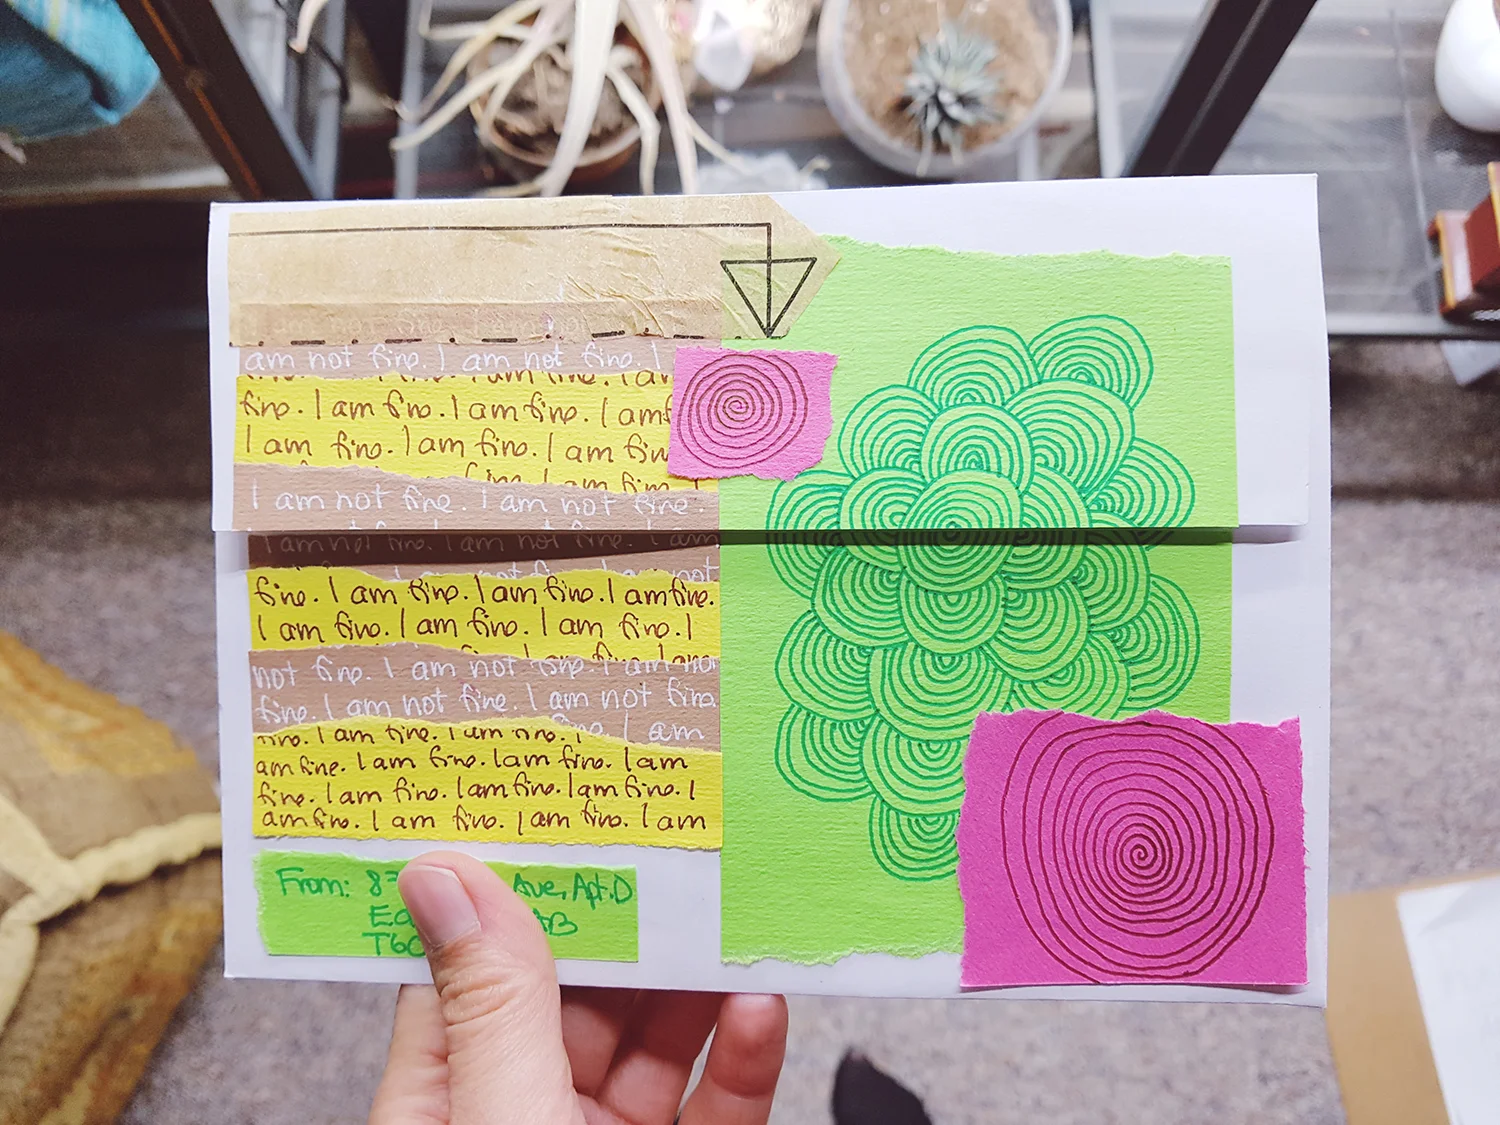 am not fine. I am not fine. I
fine. I am fine. I am fine. I am
I am fine. I am fine. I am fin
I am not fine. I am not fine.
I am not fine. I am not fine. I am
fine. I am fine. I am fine. I am fine.
I am fine. I am fine. I am fine. I
not fine. I am not fine. I am not
fine. I am not fine. I am not fine.
I am
fine. I am fine. I am fine. I
am fine. I am fine. I am fine. I am
fine. I am fine. I am fine. I am fine. I
am fine. I am fine. I am fine. I am
From: 87 Ave, Apt. D
Ed AB
T6